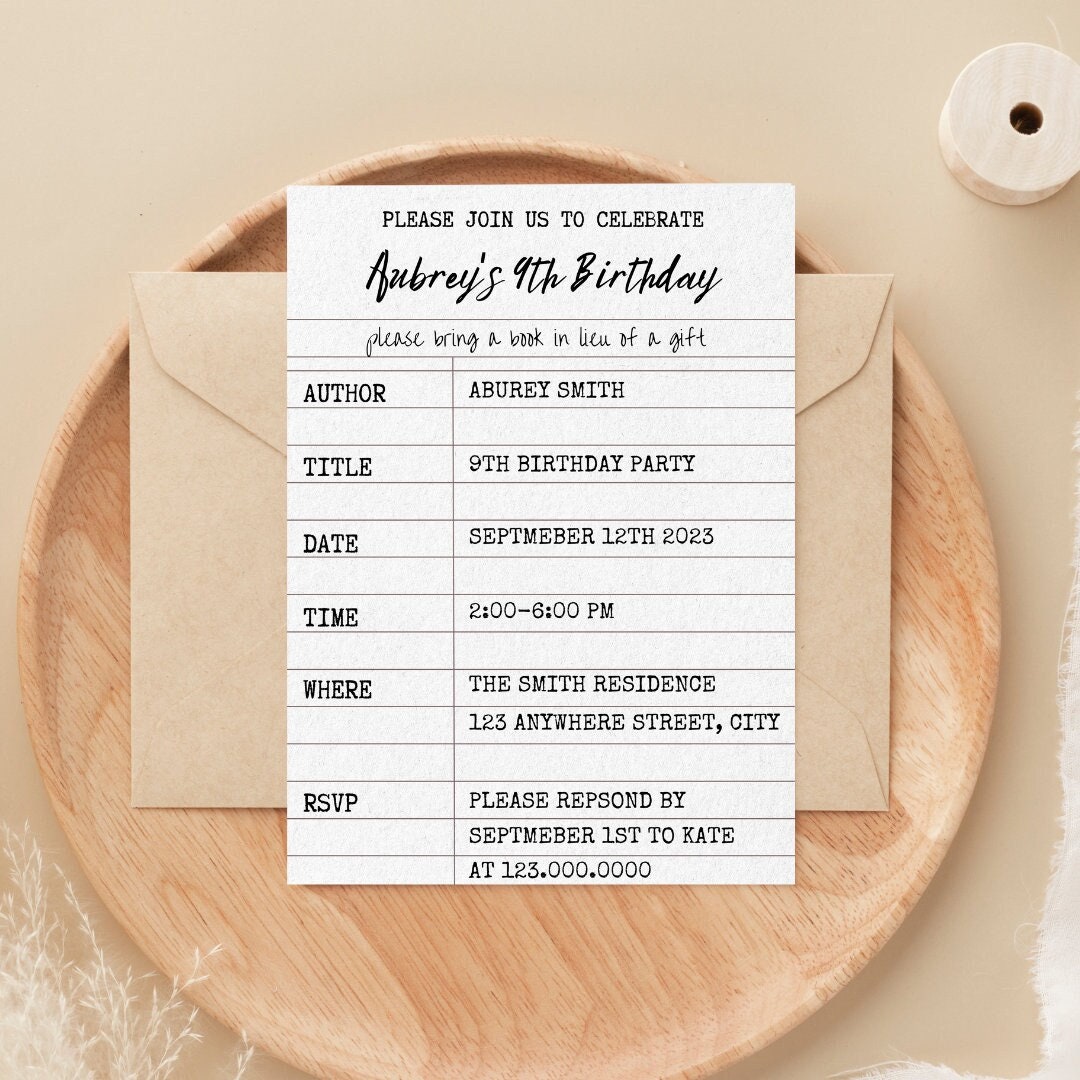 PLEASE JOIN US TO CELEBRATE
Aubrey's 9th Birthday
please bring a book in lieu of a gift
AUTHOR ABUREY SMITH
TITLE 9TH BIRTHDAY PARTY
DATE SEPTMEBER 12TH 2023
TIME 2:00-6:00 PM
WHERE THE SMITH RESIDENCE
123 ANYWHERE STREET, CITY
RSVP PLEASE REPSOND BY
SEPTMEBER 1ST TO KATE
AT 123.000.0000